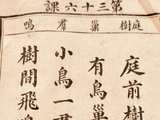 第三十六課
庭樹 巢 羣 鳴
庭前樹
有鳥巢
小鳥一羣
樹間飛鳴